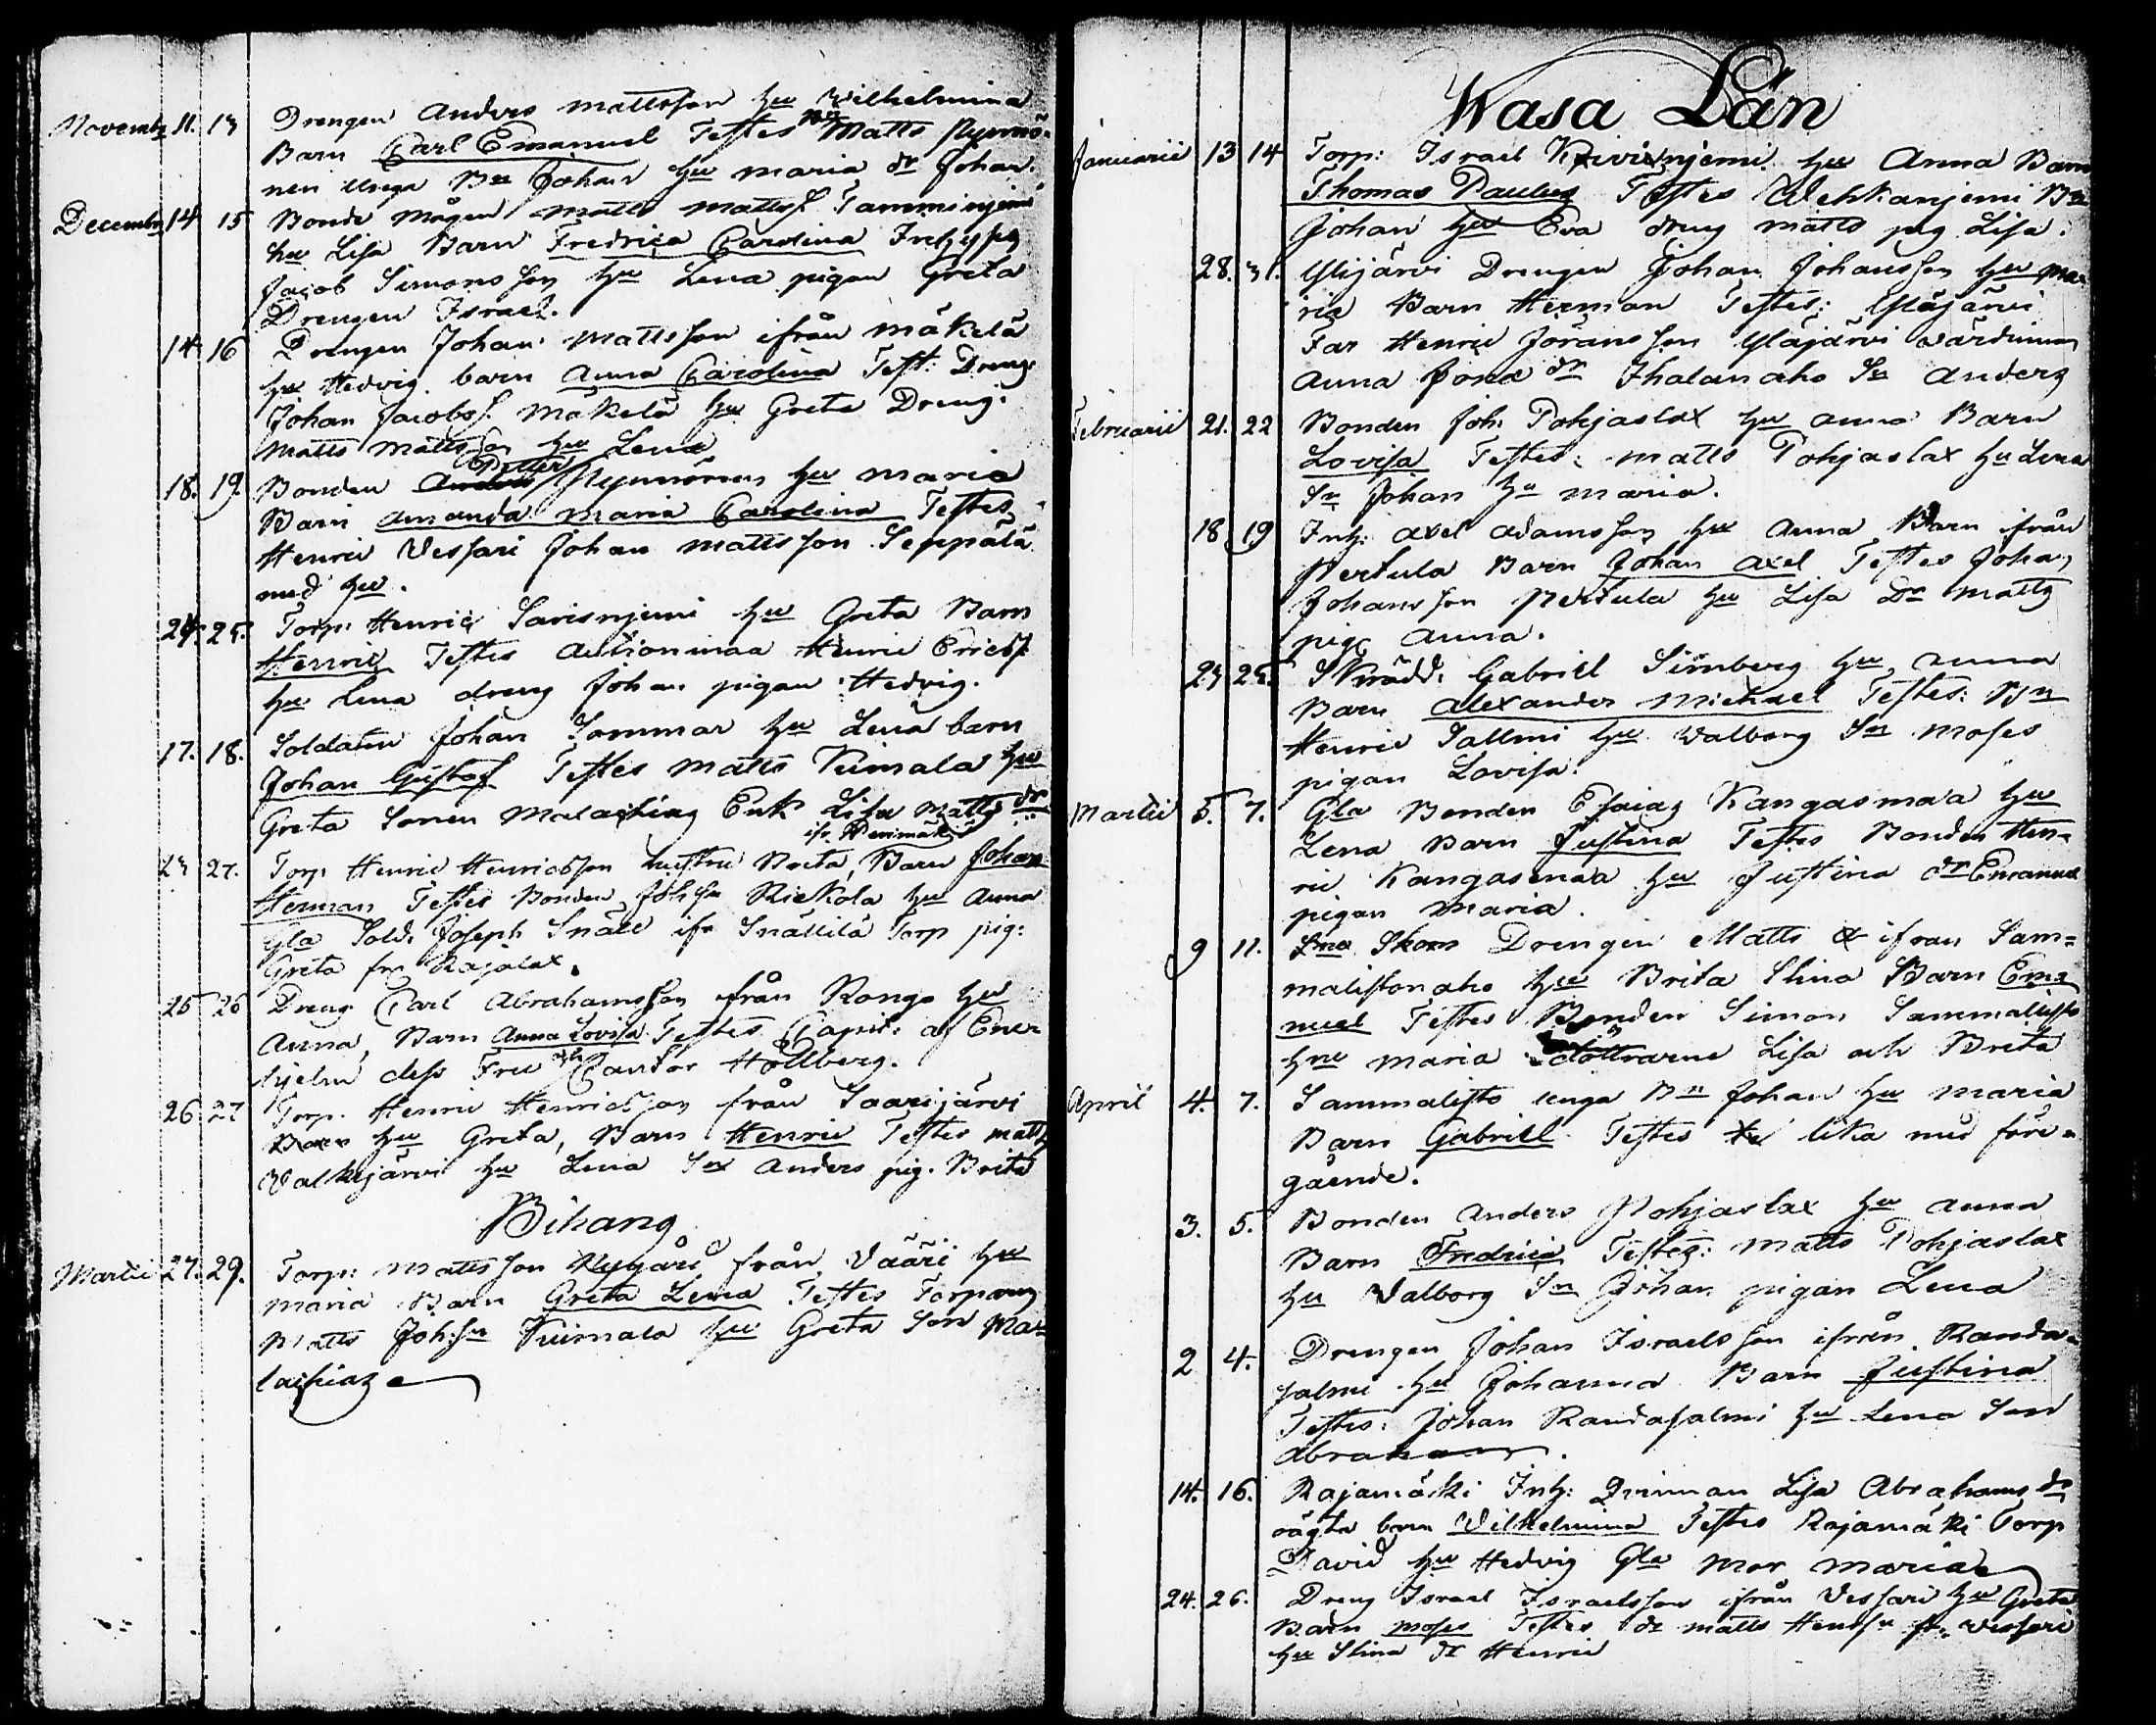 Novembr 11. 13 Drengen Anders Mattsson hu Wilhelmina
Barn Carl Emanuel Testes Bn Matts Nyrnö-
nen unga Bn Johan hu Maria dr Johan.
Decembr 14 15 Bonde Mågen Matts Mattss. Tamminjemi
hu Lisa Barn Fredrica Carolina
Jacob Simonsson hu Lena pigan Greta
Drengen Israel.
14. 16 Drengen Johan Mattsson ifrån Mäkelä
hu Hedvig barn Anna Carolina Test: Dreng:
Johan Jacobss. Mäkelä hu Greta Dreng:
Matts Mattsson hu Lena
18. 19. Bonden Petter hu Maria
Barn Amanda Maria Carolina Testes
Henric Vessari Johan Mattsson Seppälä
med hu.
24. 25. Torp: Henric Sarisnjemi hu Greta Barn
Henric Testes Autionmaa Henric Ericss.
hu Lena dreng Johan pigan Hedvig.
17. 18. Soldaten Johan Sommar hu Lena barn
Johan Gustaf Testes Matts Kuimala hu
Greta Sonen Malachias Enk Lisa Matts dr
23 27. Torp Henric Henricsson hustru Brita, Barn Johan
Herman Testes Bonden Johss. Riekola hu Anna
Gla Sold: Joseph Snäll ifr Snällilä Torp pig:
Greta fr Rajalax.
25 26 Dreng Carl Abrahamsson från Kongo hu
Anna, Barn Anna Lovisa Testes Capit: af Ener
hjelm dess Fru och Cantor Hollberg.
26. 27 Torp. Henric Henricsson från Saarijärvi
hu Greta, Barn Henric Testes Matts
Valkejärvi hu Lena Sn Anders pig. Brita
Bihang
Martii 27. 29. Torp: Mattsson Nygård från Vääri hu
Maria Barn Greta Lena Testes Torparen
Matts Johsn Kuimala hu Greta Son Ma-
lachias
Wasa Län
Januarii 13 14 Torp: Israel Kivinjemi hu Anna Barn
Thomas Paulus Testes Wehkanjemi Bn
Johan hu Eva dreng Matts pig Lisa.
28. 31. Yläjärvi Drengen Johan Johansson hu Ma-
ria Barn Herman Testes: Yläjärvi
Far Henric Jöransson Yläjärvi Värdinnan
Anna Jona dr Ihalanaho Sn Anders
Februarii 21. 22 Bonden Joh: Pohjaslax hu Anna Barn
Lovisa Testes: Matts Pohjaslax hu Lena
Sn Johan hu Maria.
18 19 Inh: Axel Adamsson hu Anna Barn ifrån
Pertula Barn Johan Axel Testes Johan
Johansson Pertula hu Lisa Dr Matts
pig Anna.
23 25. Skrädd: Gabriel Simberg hu Anna
Barn Alexander Michael Testes: Bn
Henric Sallmi hu Walborg Sn Moses
pigan Lovisa.
Martii 5. 7. Gla Bonden Esaias Kangasmaa hu
Lena Barn Justina Testes Bonden Hen-
ric Kangasmaa hu Justina dr Emanuel
pigan Maria.
9 11. Drengen Matts ifrån Sam-
malistonaho hu Brita Stina Barn Ema
nuel Testes Bonden Simon Sammallisto
hu Maria döttrarne Lisa och Brita
April 4. 7. Sammalisto unga Bn Johan hu Maria
Barn Gabriel Testes lika med före-
gående.
3. 5. Bonden Anders Pohjaslax hu Anna
Barn Fredrica Testes: Matts Pohjaslax
hu Valborg Sn Johan pigan Lena
2 4. Drengen Johan Israelsson ifrån Randa-
salmi hu Johanna Barn Justina
Testes: Johan Randasalmi hu Lena Son
Abraham.
14. 16. Rajamäki Inh: Qvinnan Lisa Abrahams dr
oägta barn Wilhelmina Testes Rajamäki Torp
David hu Hedvig Gla Mor Maria
24. 26. Dreng Israel Israelsson ifrån Vessari hu Greta
Barn Moses Testes dr Matts Henrsn fr. Vessari
hu Stina dr Henric